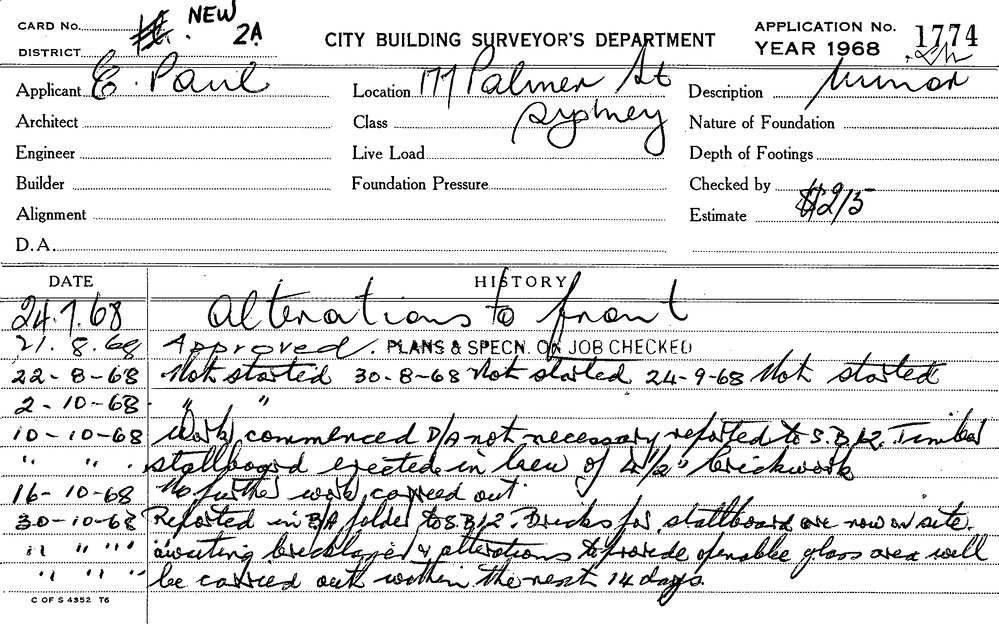 CARD No. NEW 2A
DISTRICT
CITY BUILDING SURVEYOR'S DEPARTMENT
APPLICATION No. 1774
YEAR 1968
Applicant E. Paul
Location 177 Palmer St Sydney
Description Minor
Architect
Class
Nature of Foundation
Engineer
Live Load
Depth of Footings
Builder
Foundation Pressure
Checked by
Alignment
Estimate $215
D.A.
DATE HISTORY
24.7.68 Alterations to front
21.8.68 Approved. PLANS & SPECN. ON JOB CHECKED
22-8-68 Not started 30-8-68 Not started 24-9-68 Not started
2-10-68 " "
10-10-68 Work commenced D/A not necessary reported to S.B.12. Timber
" " stallboard erected in lieu of 4½" brickwork
16-10-68 No further work carried out.
30-10-68 Reported in B/A folder to S.B.12. Bricks for stallboard are now on site.
" " " awaiting bricklayer & alterations to provide openable glass area will
" " " be carried out within the next 14 days.
C OF S 4352 T6